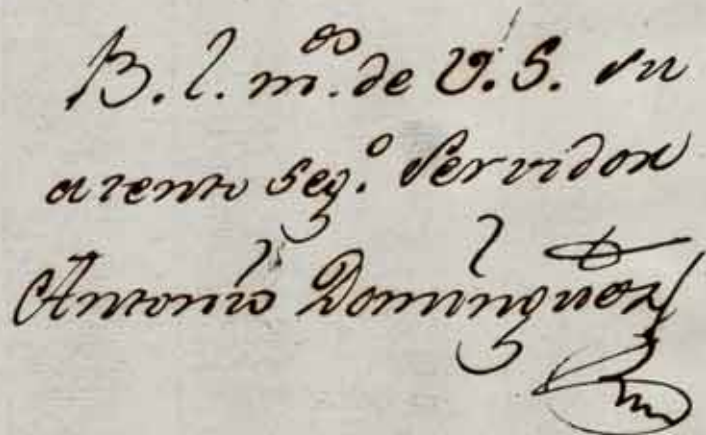 B. l. m.ᵒˢ de V. S. su
atento seg.º Servidor
Antonio Dominguez